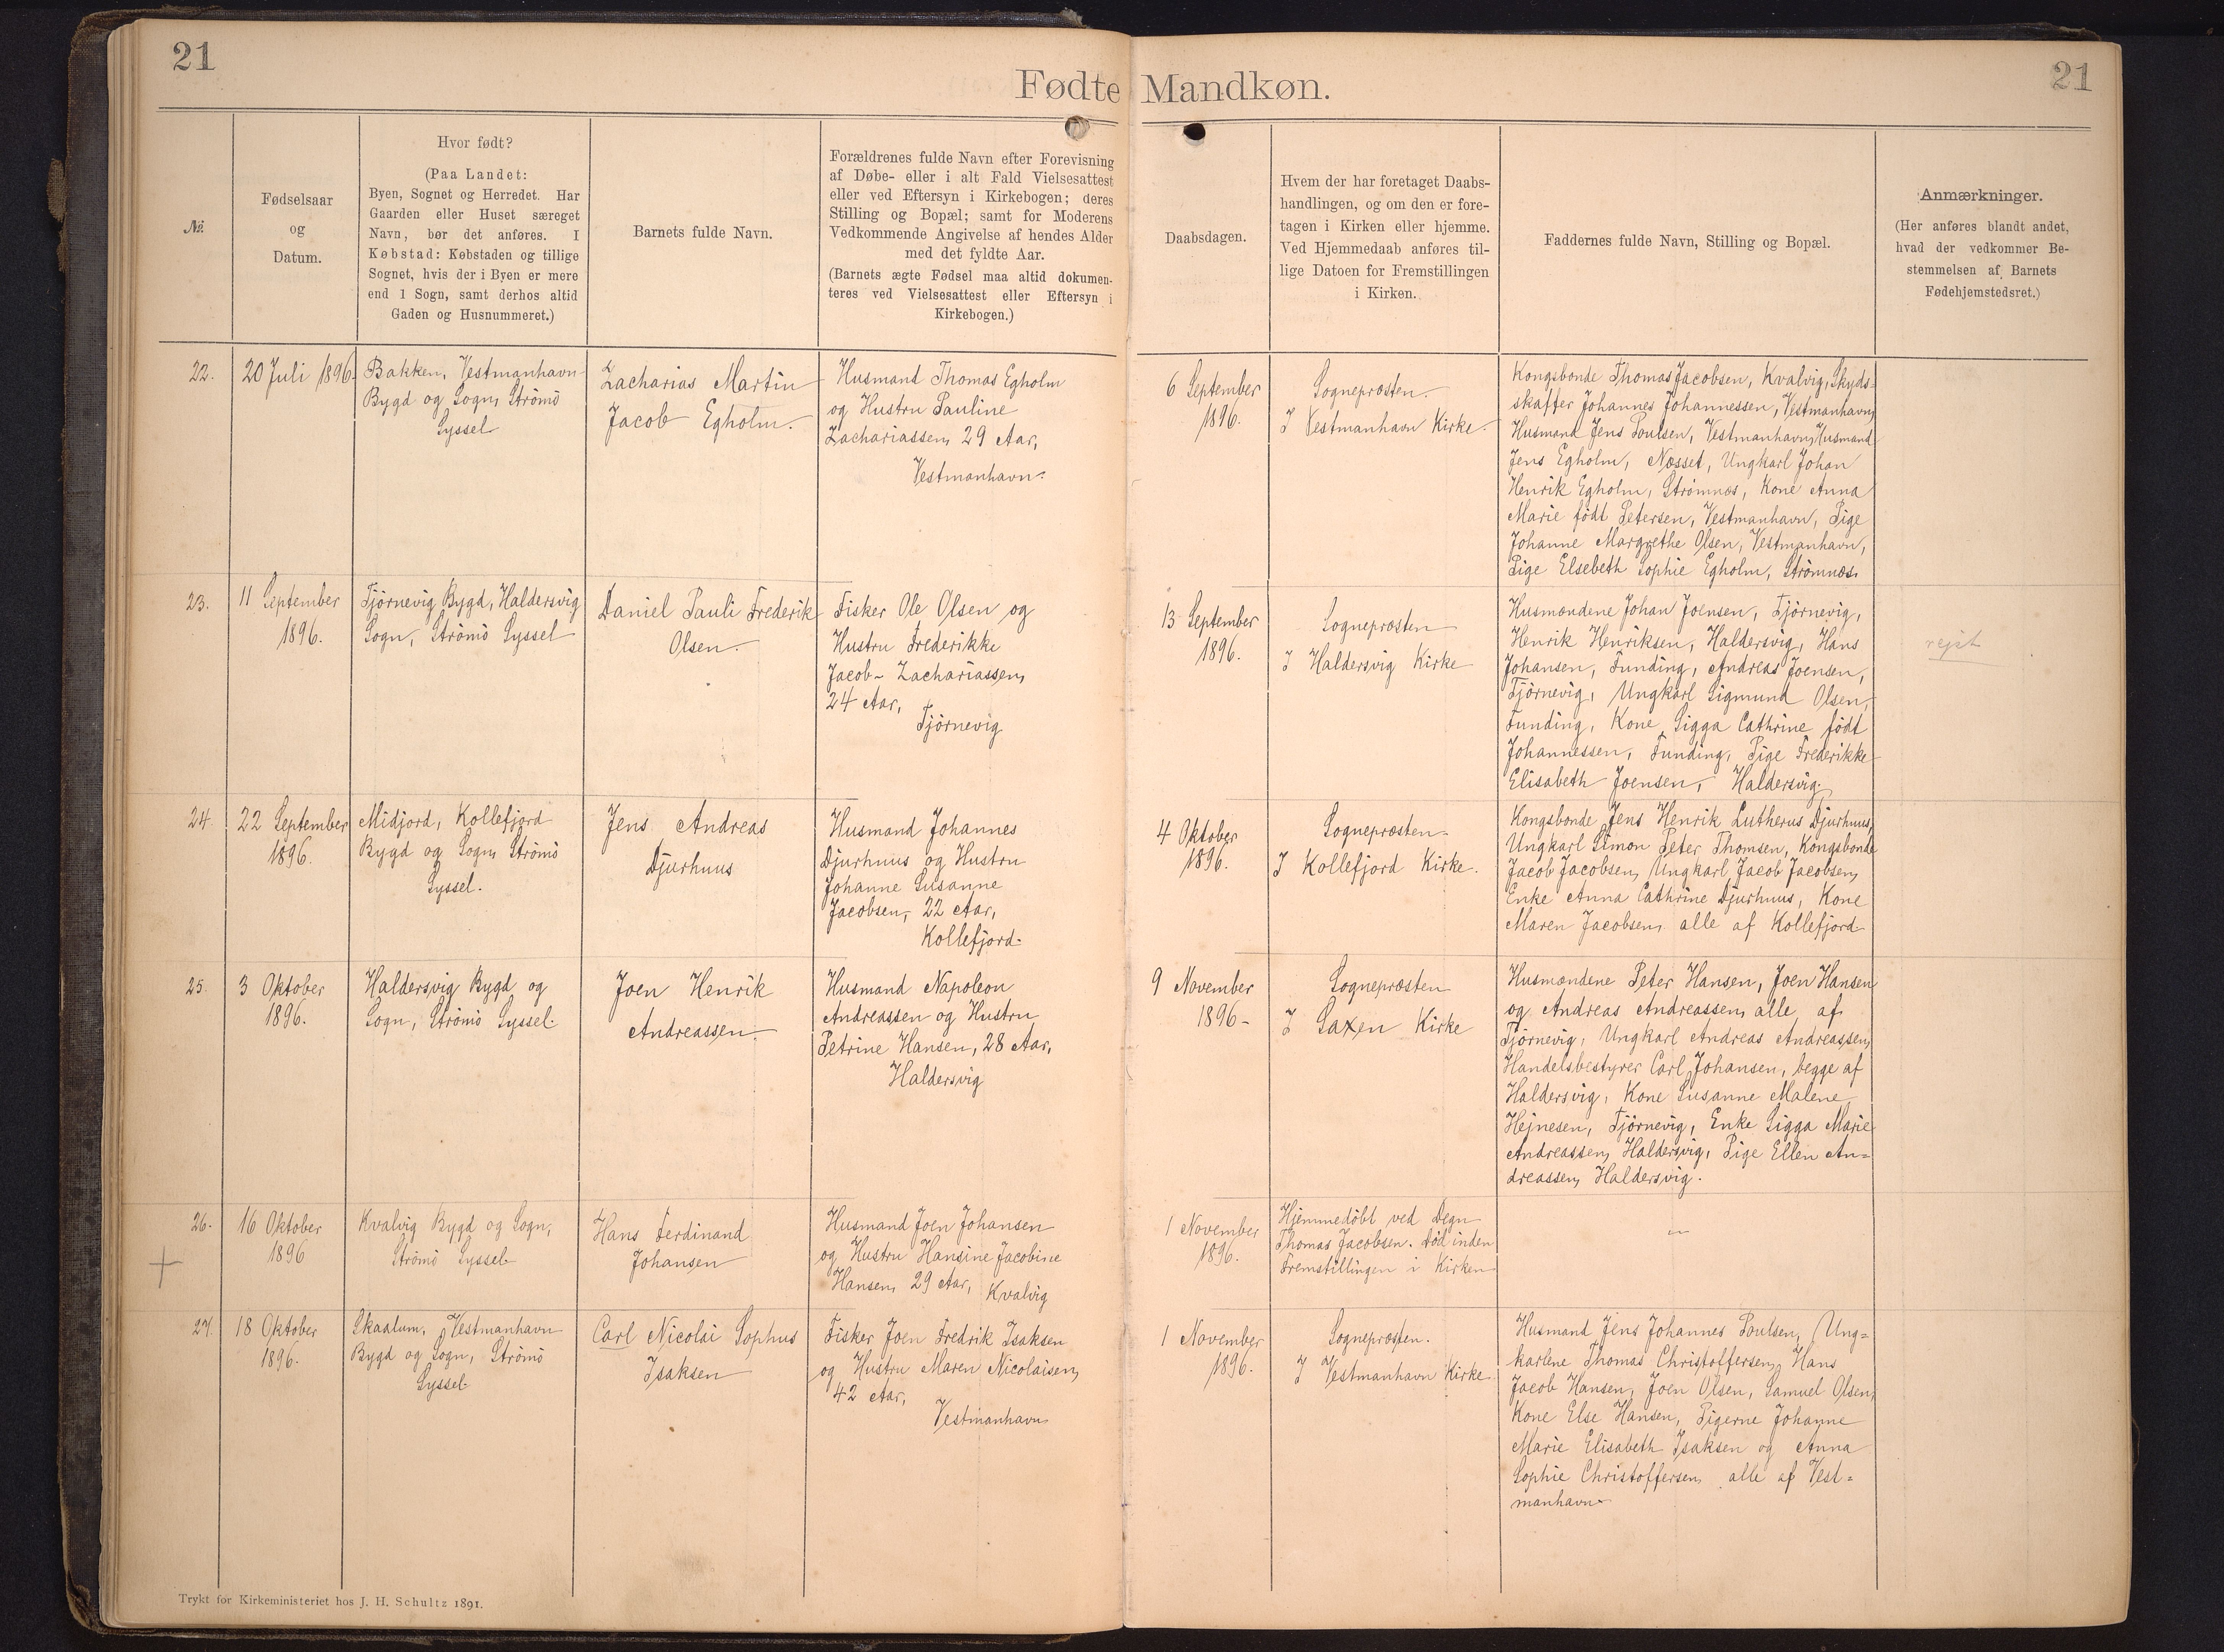 21
Fødte Mandkøn.
21
№.
Fødselsaar
og
Datum.
Hvor født?
(Paa Landet:
Byen, Sognet og Herredet. Har
Gaarden eller Huset særeget
Navn, bør det anføres. I
Købstad: Købstaden og tillige
Sognet, hvis der i Byen er mere
end 1 Sogn, samt derhos altid
Gaden og Husnummeret.)
Barnets fulde Navn.
Forældrenes fulde Navn efter Forevisning
af Døbe- eller i alt Fald Vielsesattest
eller ved Eftersyn i Kirkebogen; deres
Stilling og Bopæl; samt for Moderens
Vedkommende Angivelse af hendes Alder
med det fyldte Aar.
(Barnets ægte Fødsel maa altid dokumen-
teres ved Vielsesattest eller Eftersyn i
Kirkebogen.)
Daabsdagen.
Hvem der har foretaget Daabs-
handlingen, og om den er fore-
tagen i Kirken eller hjemme.
Ved Hjemmedaab anføres til-
lige Datoen for Fremstillingen
i Kirken.
Faddernes fulde Navn, Stilling og Bopæl.
Anmærkninger.
(Her anføres blandt andet,
hvad der vedkommer Be-
stemmelsen af Barnets
Fødehjemstedsret.)
22.
20 Juli 1896.
Bakken, Vestmanhavn
Bygd og Sogn, Strömö
Syssel
Zacharias Martin
Jacob Egholm.
Husmand Thomas Egholm
og Hustru Pauline
Zachariassen, 29 Aar,
Vestmanhavn.
6 September
1896.
Sognepræsten.
I Vestmanhavn Kirke.
Kongsbonde Thomas Jacobsen, Kvalvig, Skyds-
skaffer Johannes Johannessen, Vestmanhavn,
Husmand Jens Poulsen, Vestmanhavn, Husmand
Jens Egholm, Næsset, Ungkarl Johan
Henrik Egholm, Strömnæs, Kone Anna
Marie født Petersen, Vestmanhavn, Pige
Johanne Margrethe Olsen, Vestmanhavn,
Pige Elsebeth Sophie Egholm, Strömnæs.
23.
11 September
1896.
Tjörnevig Bygd, Haldersvig
Sogn, Strömö Syssel
Daniel Pauli Frederik
Olsen.
Fisker Ole Olsen og
Hustru Frederikke
Jacob- Zachariassen,
24 Aar,
Tjörnevig
13 September
1896.
Sognepræsten
I Haldersvig Kirke
Husmændene Johan Joensen, Tjörnevig,
Henrik Henriksen, Haldersvig, Hans
Johansen, Funding, Andreas Joensen,
Tjörnevig, Ungkarl Sigmund Olsen,
Funding, Kone Sigga Cathrine født
Johannessen, Funding, Pige Frederikke
Elisabeth Joensen, Haldersvig.
rejst
24.
22 September
1896.
Midjord, Kollefjord
Bygd og Sogn, Strömö
Syssel.
Jens Andreas
Djurhuus
Husmand Johannes
Djurhuus og Hustru
Johanne Susanne
Jacobsen, 22 Aar,
Kollefjord.
4 Oktober
1896.
Sognepræsten.
I Kollefjord Kirke.
Kongsbonde Jens Henrik Lutherus Djurhuus,
Ungkarl Simon Peter Thomsen, Kongsbonde
Jacob Jacobsen, Ungkarl Jacob Jacobsen,
Enke Anna Cathrine Djurhuus, Kone
Maren Jacobsen, alle af Kollefjord
25.
3 Oktober
1896.
Haldersvig Bygd og
Sogn, Strömö Syssel.
Joen Henrik
Andreassen.
Husmand Napoleon
Andreassen og Hustru
Petrine Hansen, 28 Aar,
Haldersvig
9 November
1896-
Sognepræsten
I Saxen Kirke
Husmændene Peter Hansen, Joen Hansen
og Andreas Andreassen, alle af
Tjörnevig, Ungkarl Andreas Andreassen,
Handelsbestyrer Carl Johansen, begge af
Haldersvig, Kone Susanne Malene
Hejnesen, Tjörnevig, Enke Sigga Marie
Andreassen, Haldersvig, Pige Ellen An-
dreassen, Haldersvig.
26.
+
16 Oktober
1896
Kvalvig Bygd og Sogn,
Strömö Syssel
Hans Ferdinand
Johansen
Husmand Joen Johansen
og Hustru Hansine Jacobine
Hansen, 29 Aar, Kvalvig
1 November
1896.
Hjemmedöbt ved Degn
Thomas Jacobsen. Död inden
Fremstillingen i Kirken
27.
18 Oktober
1896.
Skaalum, Vestmanhavn
Bygd og Sogn, Strömö
Syssel
Carl Nicolai Sophus
Isaksen
Fisker Joen Fredrik Isaksen
og Hustru Maren Nicolaisen,
42 Aar,
Vestmanhavn
1 November
1896.
Sognepræsten.
I Vestmanhavn Kirke
Husmand Jens Johannes Poulsen, Ung-
karlene Thomas Christoffersen, Hans
Jacob Hansen, Joen Olsen, Samuel Olsen,
Kone Else Hansen, Pigerne Johanne
Marie Elisabeth Isaksen og Anna
Sophie Christoffersen, alle af Vest-
manhavn
Trykt for Kirkeministeriet hos J. H. Schultz 1891.